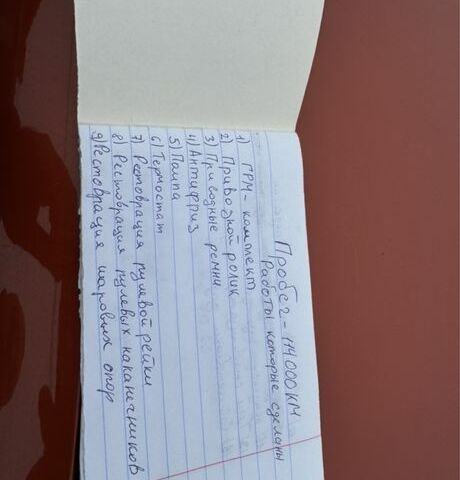 Пробег - 114.000 КМ
Работы которые сделаны
1) ГРМ - комплект
2) Приводной ролик
3) Приводные ремни
4) Антифриз
5) Помпа
6) Термостат
7) Рестоврация рулевой рейки
8) Рестоврация рулевых наконечников
9) Рестоврация шаровых опор